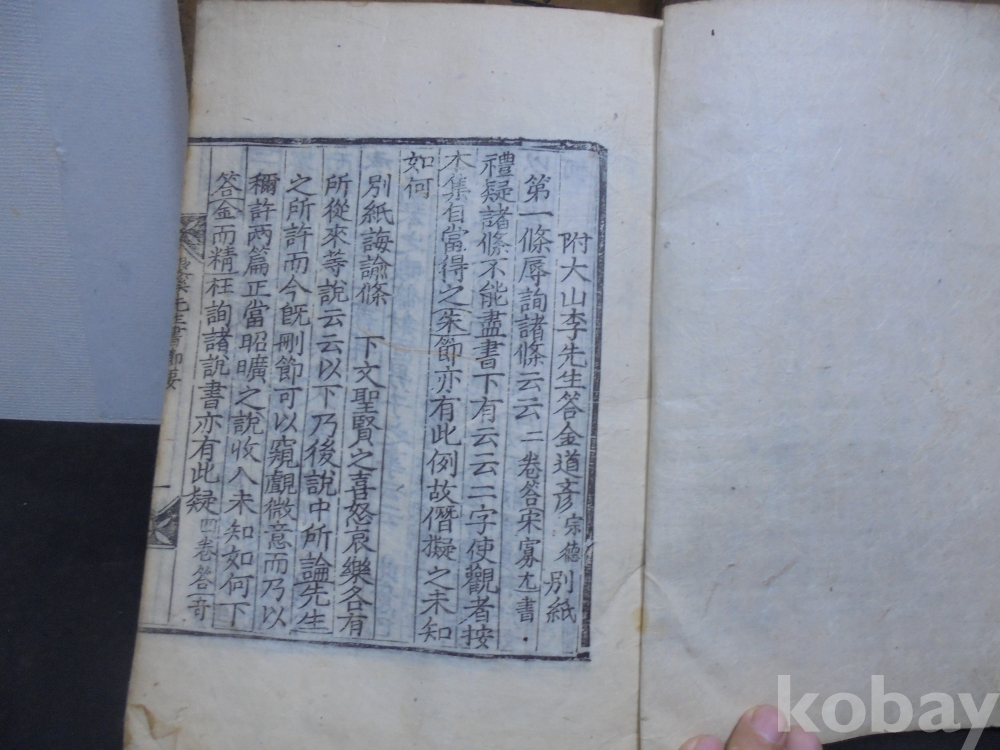 附大山李先生答金道彦宗德別紙
第一條辱詢諸條云云二卷答宋寡尤書
禮疑諸條不能盡書下有云云二字使觀者按
本集自當得之朱節亦有此例故僭擬之未知
如何
別紙誨諭條 下文聖賢之喜怒哀樂各有
所從來等說云云以下乃後說中所論先生
之所許而今旣刪節可以窺覰微意而乃以
稱許两篇正當昭曠之說收入未知如何下
答金而精枉詢諸說書亦有此疑四卷答奇
溪先生書節要
kobay